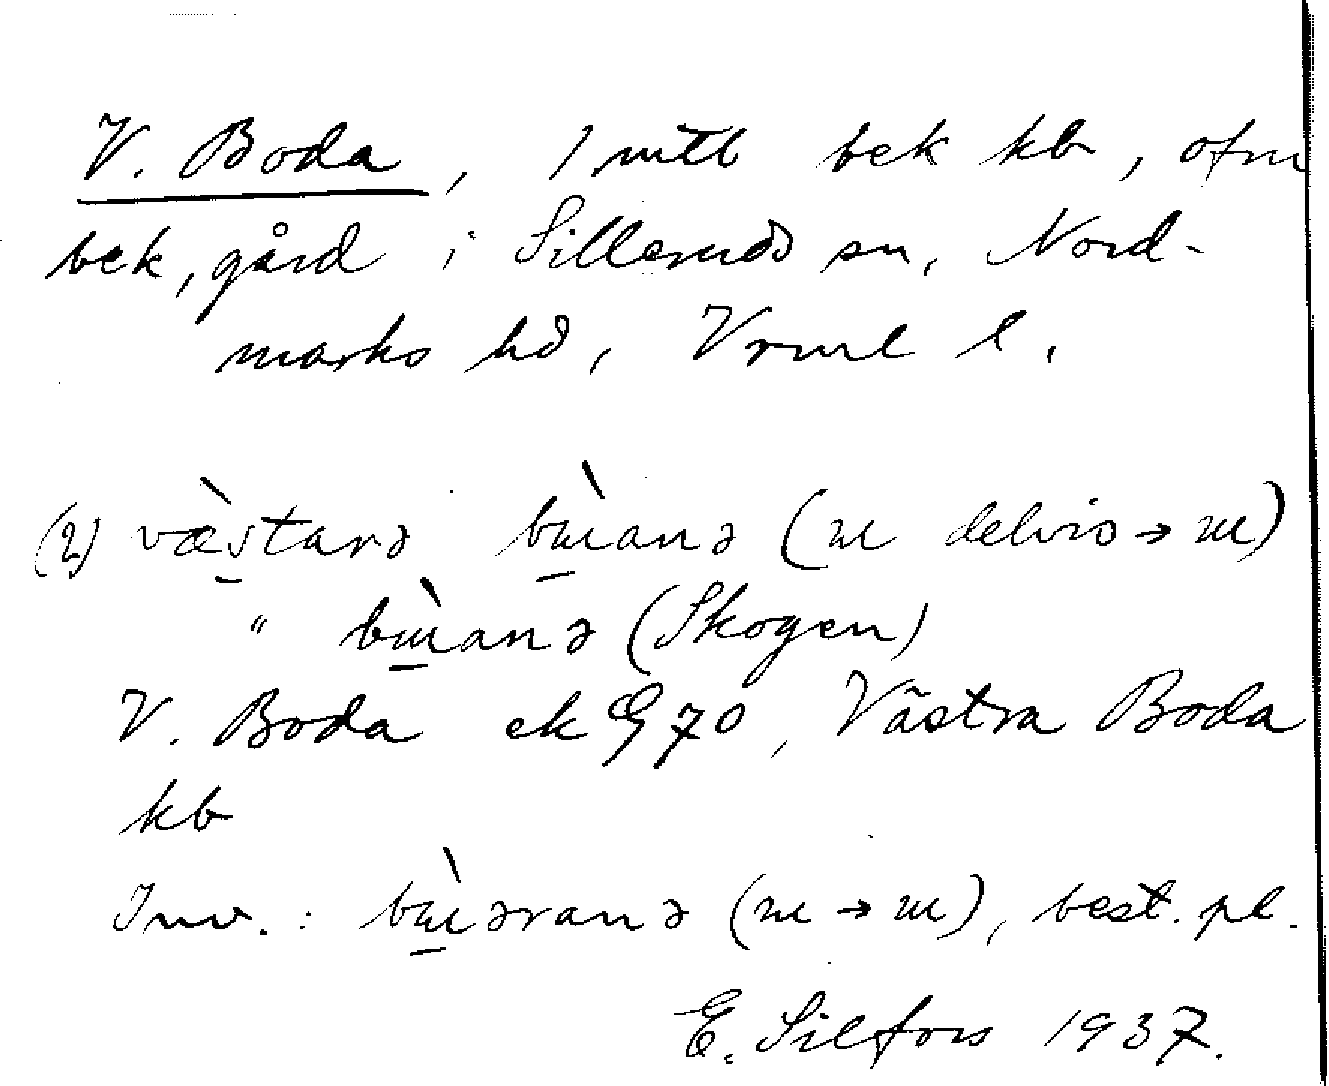 V. Boda, 1 mtl bek kb, ofm
bek, gård i Silleruds sn, Nord-
marks hd, Vrml l.
(2) væ̀starə bɯ̀anə (ɯ delvis → ɯ)
" bɯ̀anə (Skogen)
V. Boda ek G 70, Västra Boda
kb
Inv.: bɯ̀əranə (ɯ → ɯ), best. pl.
E. Silfors 1937.